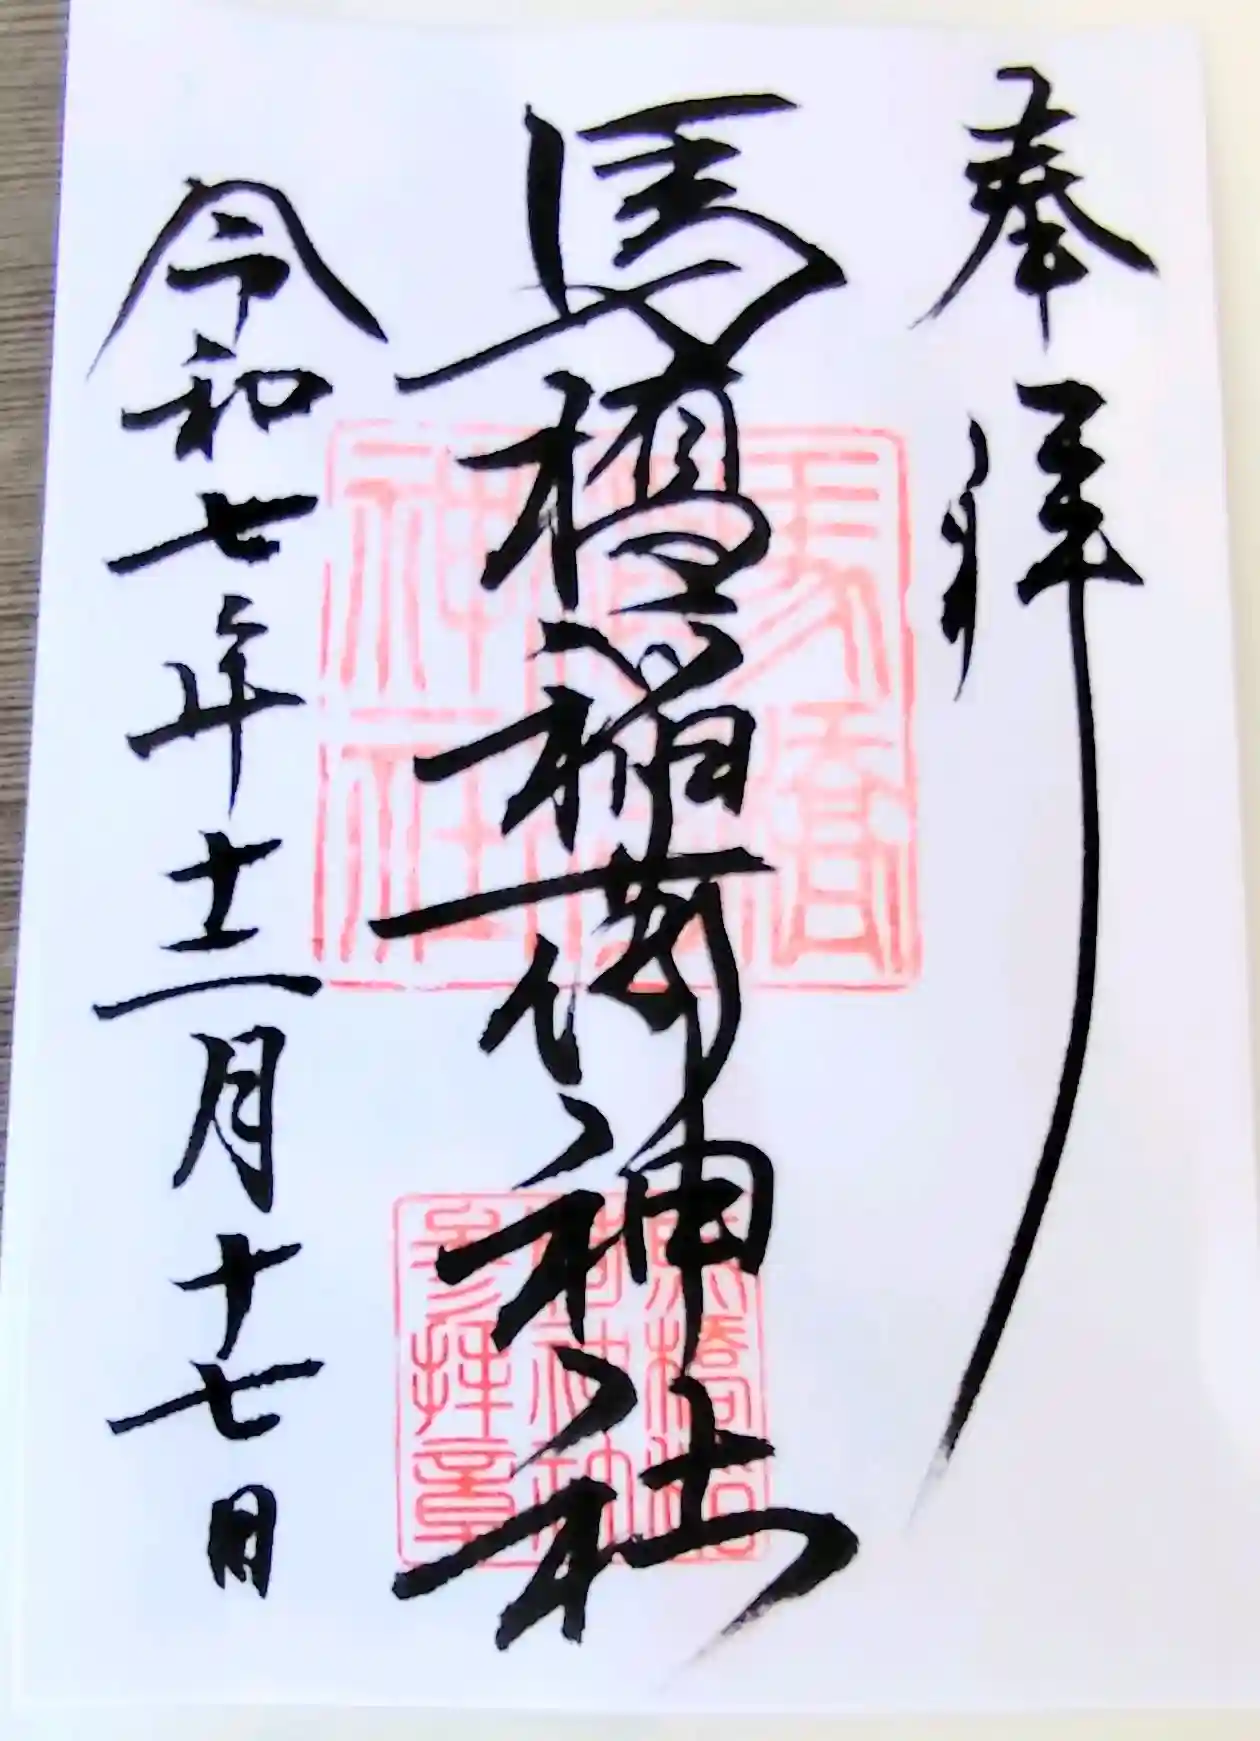 奉拝
馬橋稲荷神社
令和七年十二月十七日
馬橋
神社
馬橋稲
荷神社
参拝章